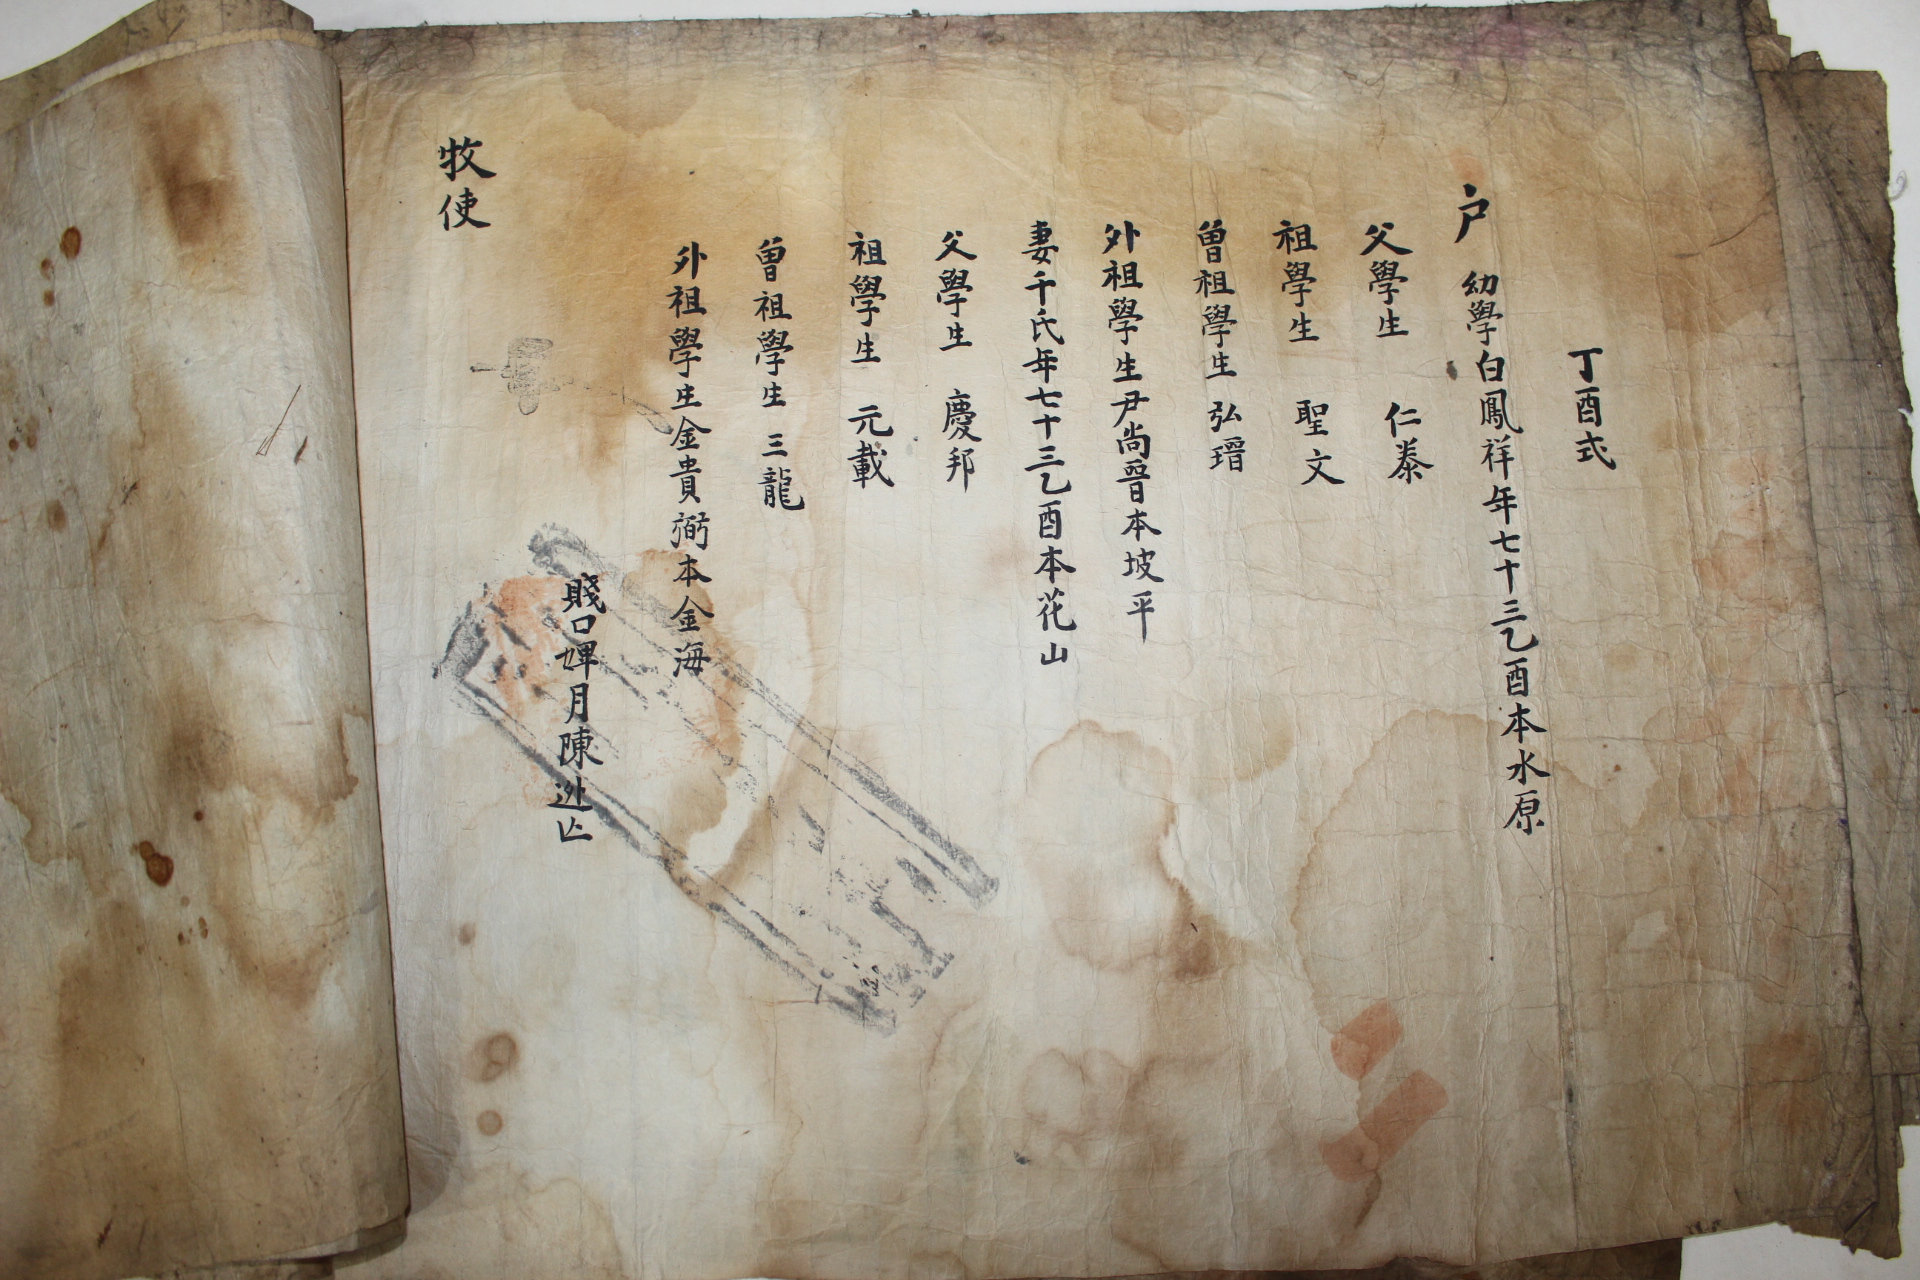 丁酉式
户 幼學白鳳祥年七十三乙酉本水原
父學生 仁泰
祖學生 聖文
曾祖學生 弘瑨
外祖學生尹尚晉本坡平
妻千氏年七十三乙酉本花山
父學生 慶邦
祖學生 元載
曾祖學生 三龍
外祖學生金貴弼本金海
賤口婢月陳逃亡
牧使